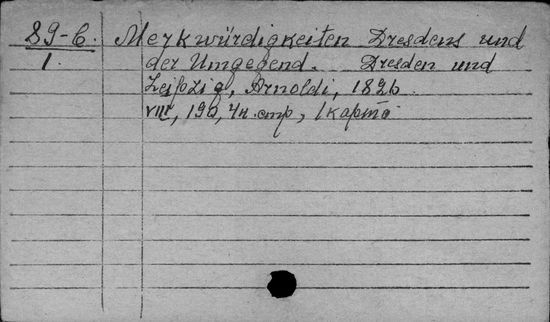 89-6. Merkwürdigkeiten Dresdens und
1. der Umgegend. Dresden und
Leipzig, Arnoldi, 1826.
VIII, 196, 4 н. стр, 1 карта